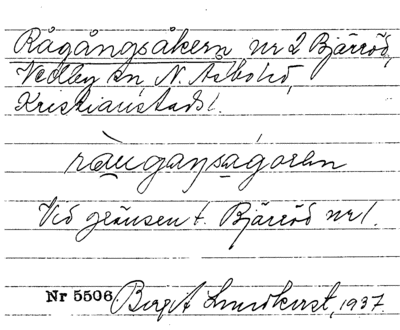 Rågångsåkern nr 2 Bjärröd,
Vedby sn, N. Åsbo hd,
Kristianstads l.
råugaŋsagoren
Vid gränsen t. Bjärröd nr 1.
Nr 5506 Birgit Lundkvist, 1937.